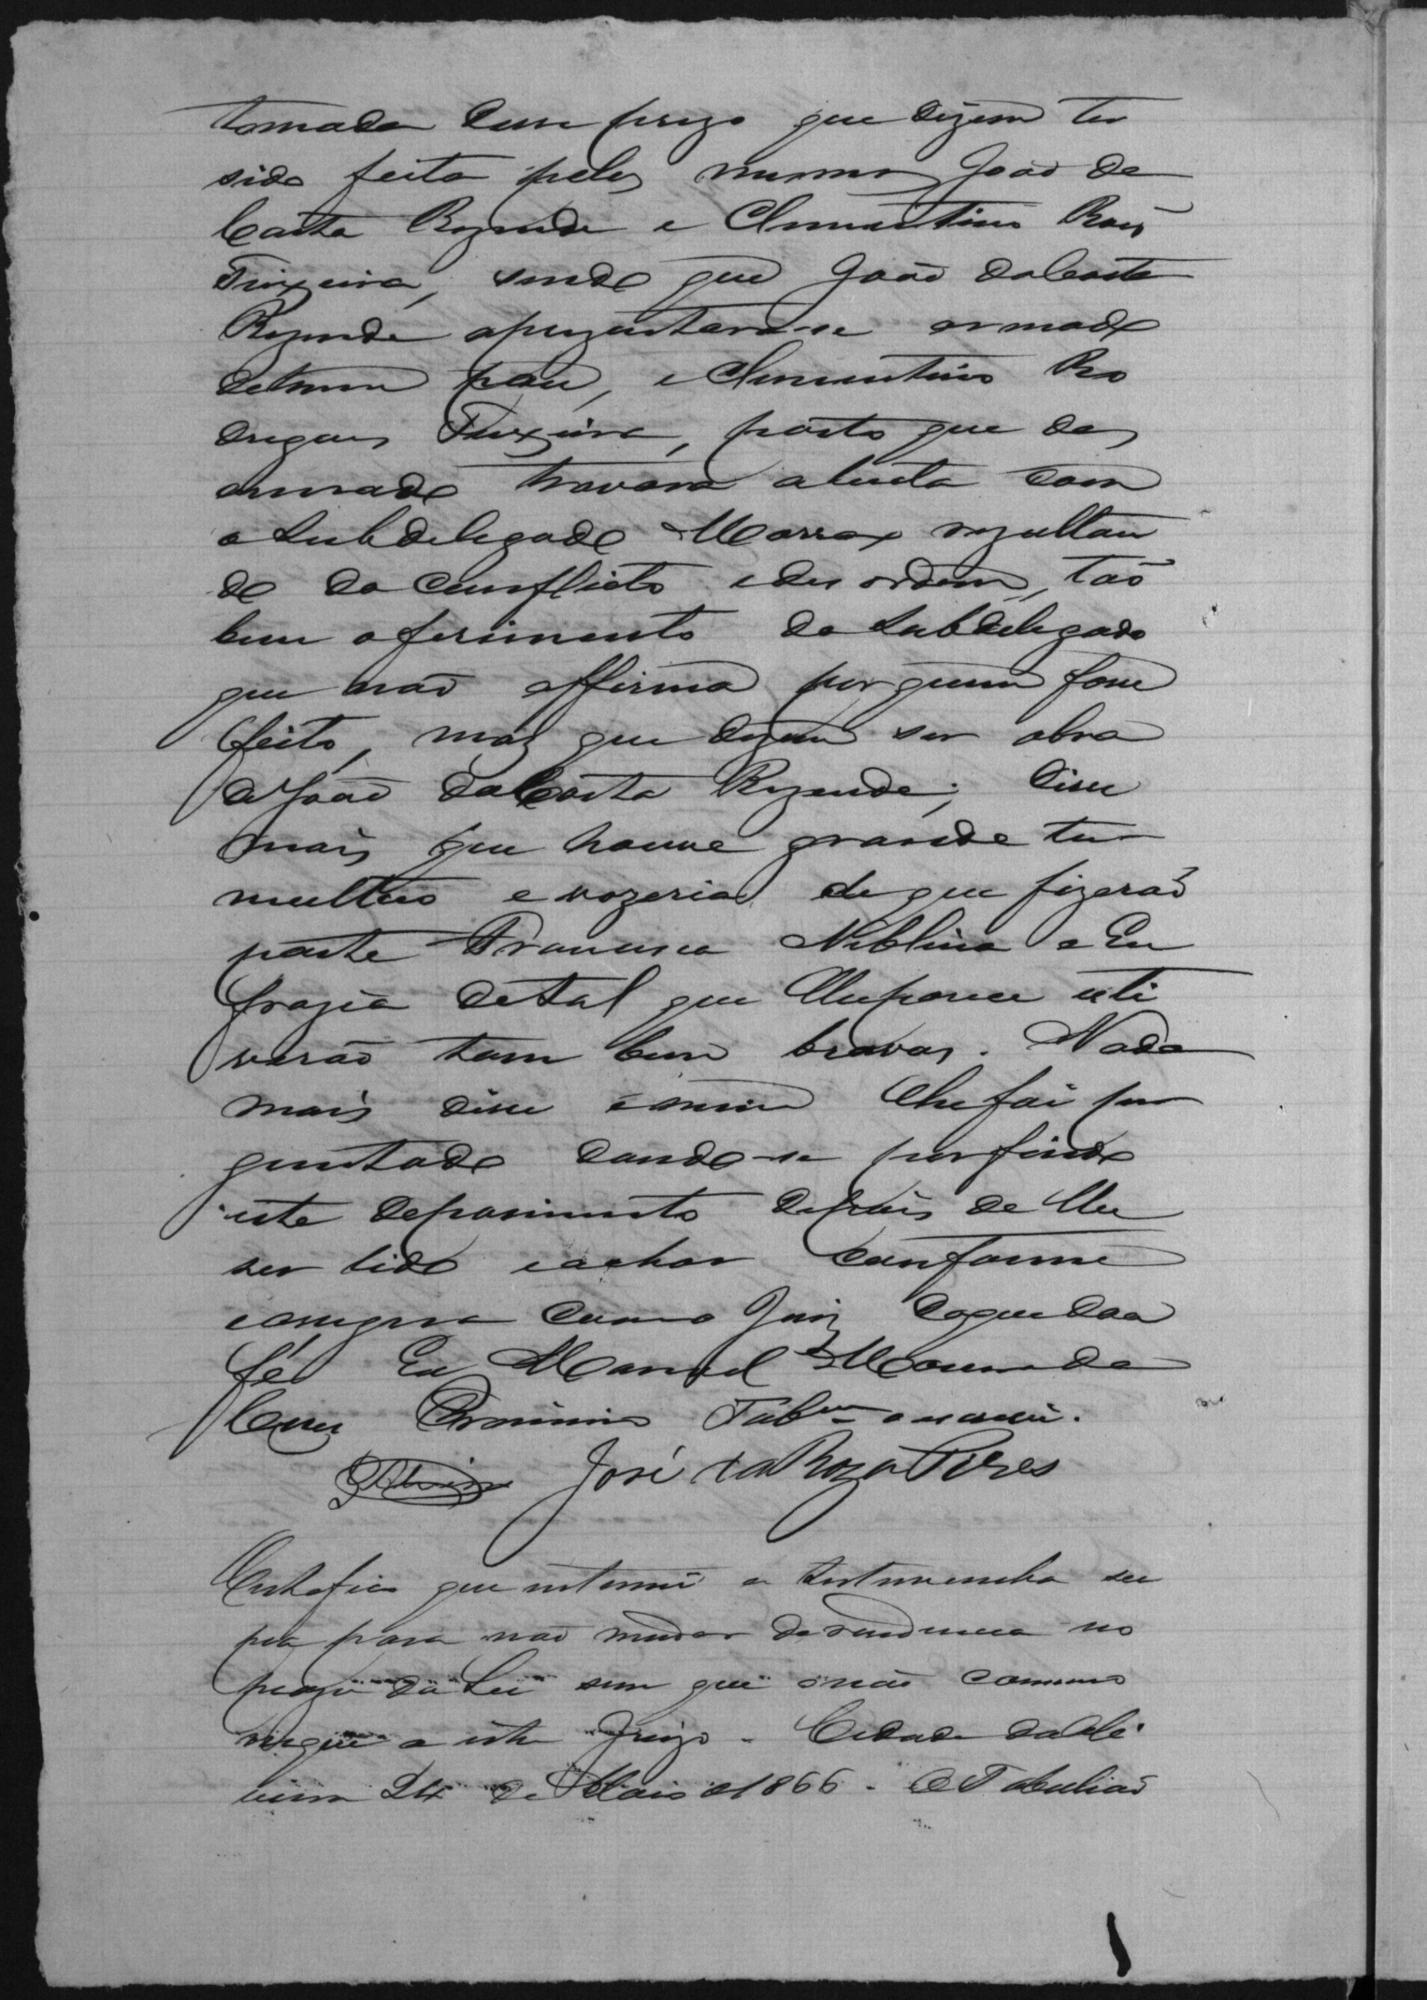 tomada dum prezo que dizem ter
sido feita pelos mesmos João da
Costa Rezende e Clementino Roiz
Teixeira, sendo que João da Costa
Rezende aprezentara-se armado
de hum páu, e Clementino Ro
drigues Teixeira, posto que des
armado travara a luta com
o Subdelegado rezultan
do do conflicto e des ordem, tão
bem o ferimento do Subdelegado
que não affirma por quem fosse
feito, mas que dizem ser obra
de João da Costa Rezende; disse
mais que houve grande tu
multuo e vozeria de que fizerão
parte Francisca Neblina e Eu
frazia de tal que lhe parece esti
verão tam bem bravas. Nada
mais disse e nem lhe foi per
guntado dando-se por findo
este depoimento depois de lhe
ser lido e achar conforme
e assigna com o Juiz do que dou
fé Eu Manoel da
Tab.am o escrevi.
José da Roza Pires
Certefico que intimei a testemunha su
pra para não mudar de rezidencia no
prazo da Lei sem que o não commu
nique a este Juizo. Cidade da
24 de Maio d 1866. O Tabelião